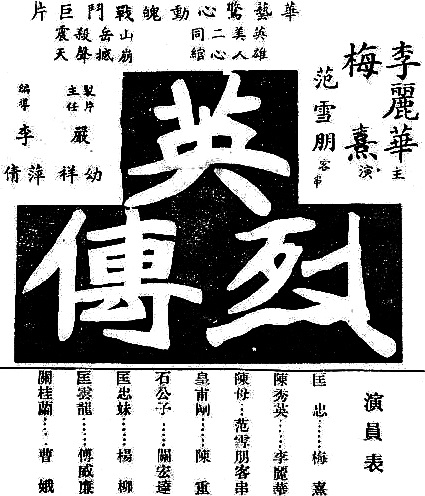 華藝驚心動魄戰鬥巨片
英雄美人二心同綰
山崩岳撼殺聲震天
李麗華
梅熹
主演
范雪朋
客串
製片主任
嚴幼祥
編導
李萍倩
英烈傳
演員表
匡忠……梅熹
陳秀英……李麗華
陳母…范雪朋客串
皇甫剛……陳重
石公子……關宏達
匡忠妹……楊柳
匡雲龍……傅威廉
關桂蘭……曹娥